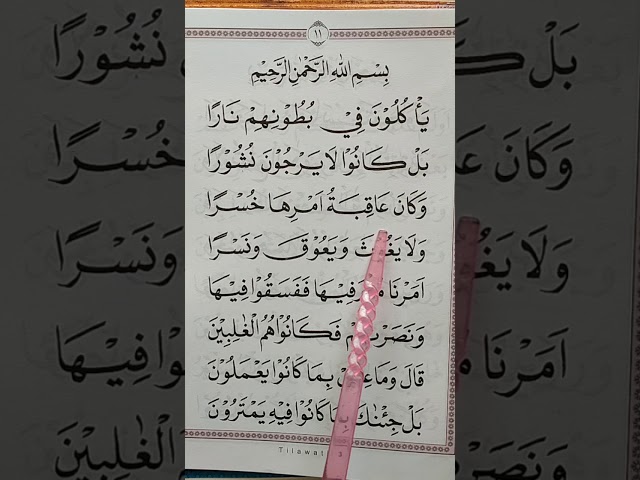 ١١
بِسْمِ اللهِ الرَّحْمٰنِ الرَّحِيْمِ
يَأْكُلُوْنَ فِيْ بُطُوْنِهِمْ نَارًا
بَلْ كَانُوْا لَا يَرْجُوْنَ نُشُوْرًا
وَكَانَ عَاقِبَةُ اَمْرِهَا خُسْرًا
وَلَا يَغُوْثَ وَيَعُوْقَ وَنَسْرًا
اَمْرْنَا فِيْهَا فَفَسَقُوْا فِيْهَا
وَنَصَرْنٰهُمْ فَكَانُوْا هُمُ الْغٰلِبِيْنَ
قَالَ وَمَا بِمَا كَانُوْا يَعْمَلُوْنَ
بَلْ جِئْنٰكَ كَانُوْا فِيْهِ يَمْتَرُوْنَ
Tilawat 3